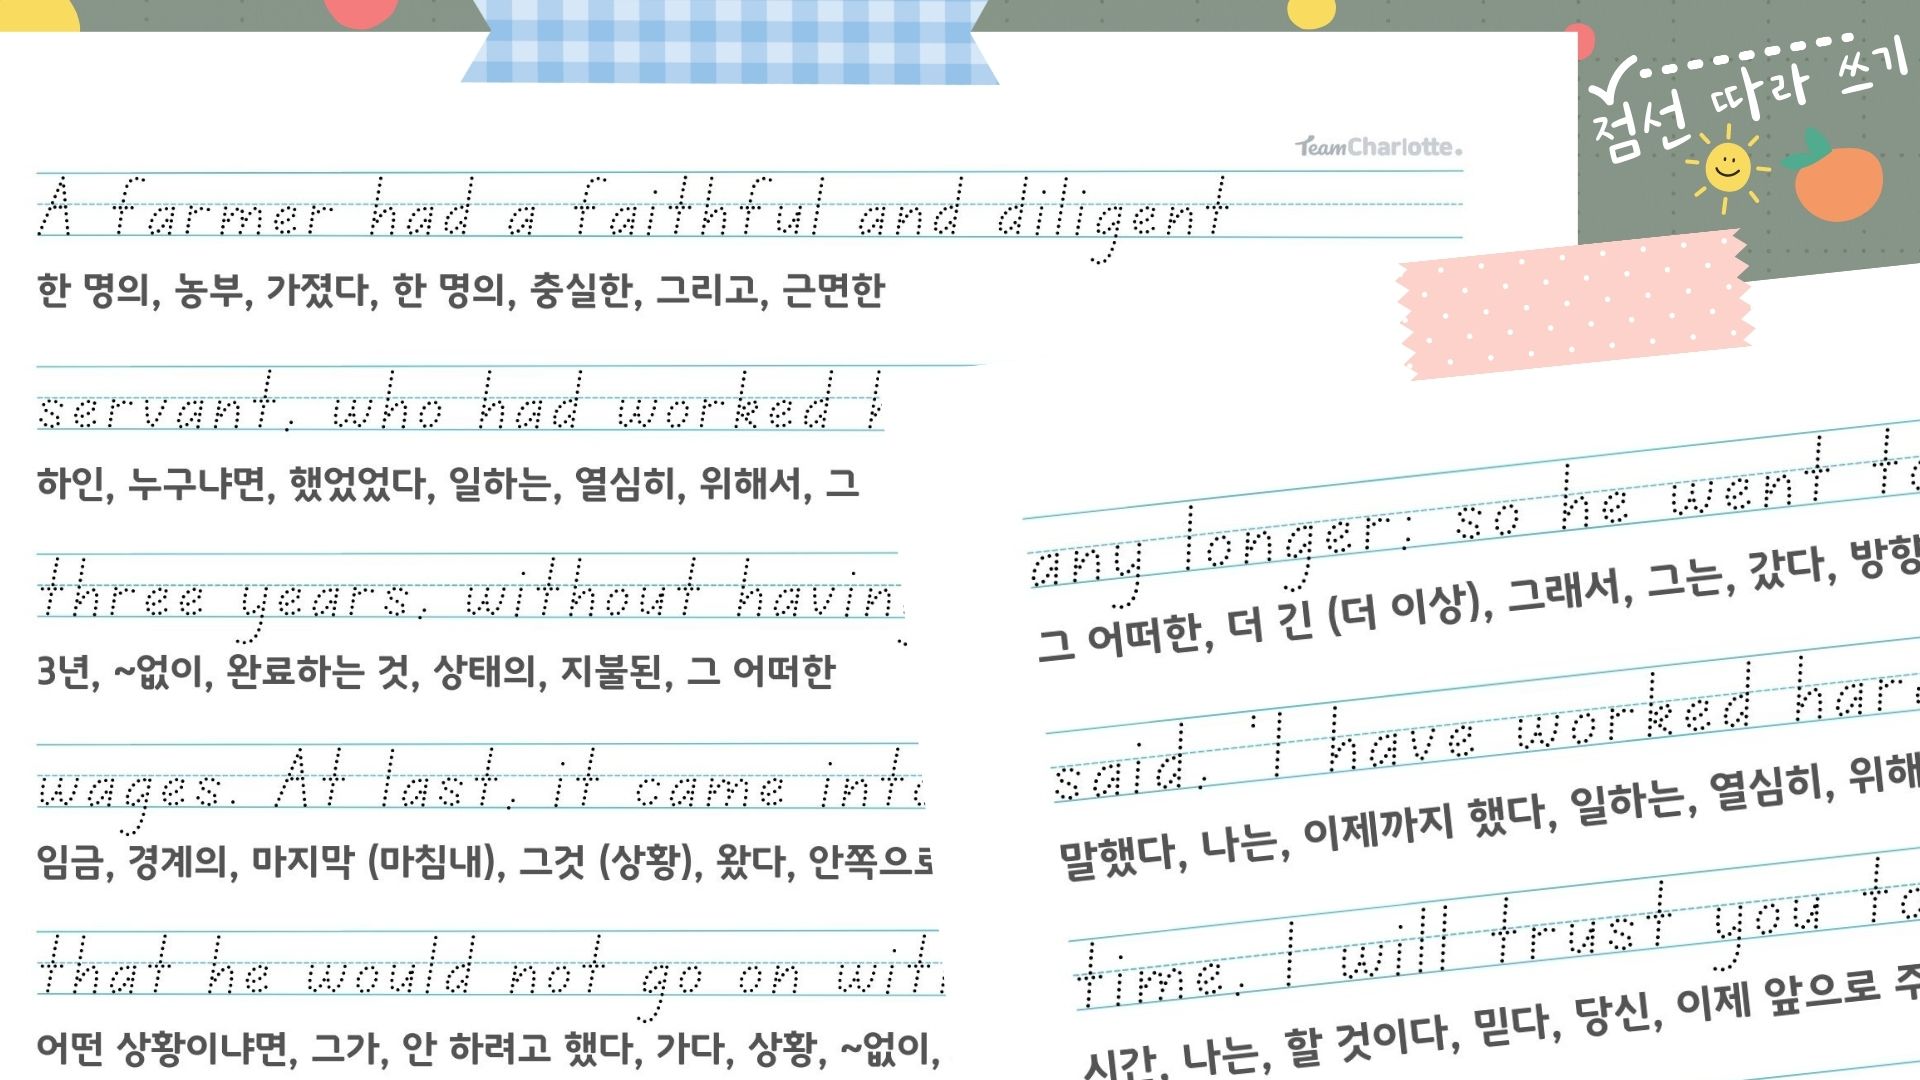 점선 따라 쓰기
TeamCharlotte.
A farmer had a faithful and diligent
한 명의, 농부, 가졌다, 한 명의, 충실한, 그리고, 근면한
servant, who had worked
하인, 누구냐면, 했었었다, 일하는, 열심히, 위해서, 그
three years, without
3년, ~없이, 완료하는 것, 상태의, 지불된, 그 어떠한
wages. At last, it came
임금, 경계의, 마지막 (마침내), 그것 (상황), 왔다, 안쪽으로
that he would not go on
어떤 상황이냐면, 그가, 안 하려고 했다, 가다, 상황, ~없이,
any longer; so he went
그 어떠한, 더 긴 (더 이상), 그래서, 그는, 갔다,
said, 'I have worked
말했다, 나는, 이제까지 했다, 일하는, 열심히,
time, I will trust you
시간, 나는, 할 것이다, 믿다, 당신, 이제 앞으로